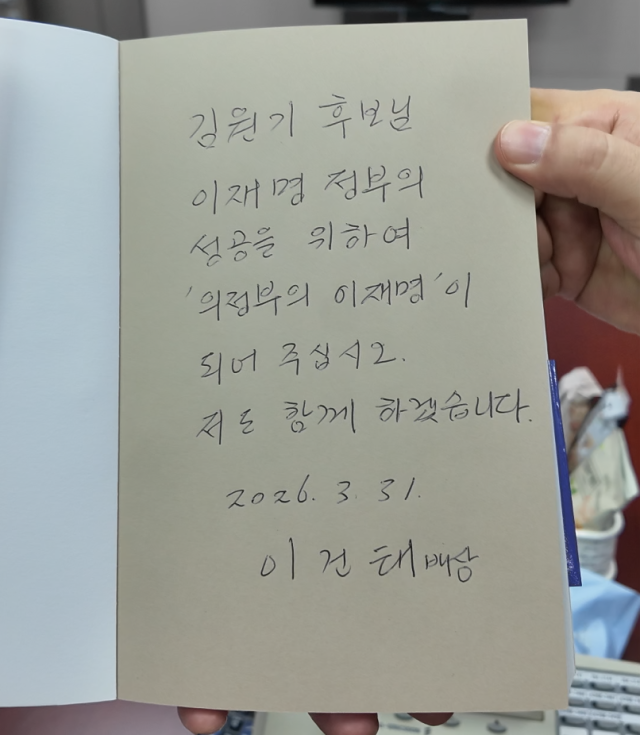 김원기 후보님
이재명 정부의
성공을 위하여
'의정부의 이재명'이
되어 주십시오.
저도 함께 하겠습니다.
2026. 3. 31.
이건태 배상